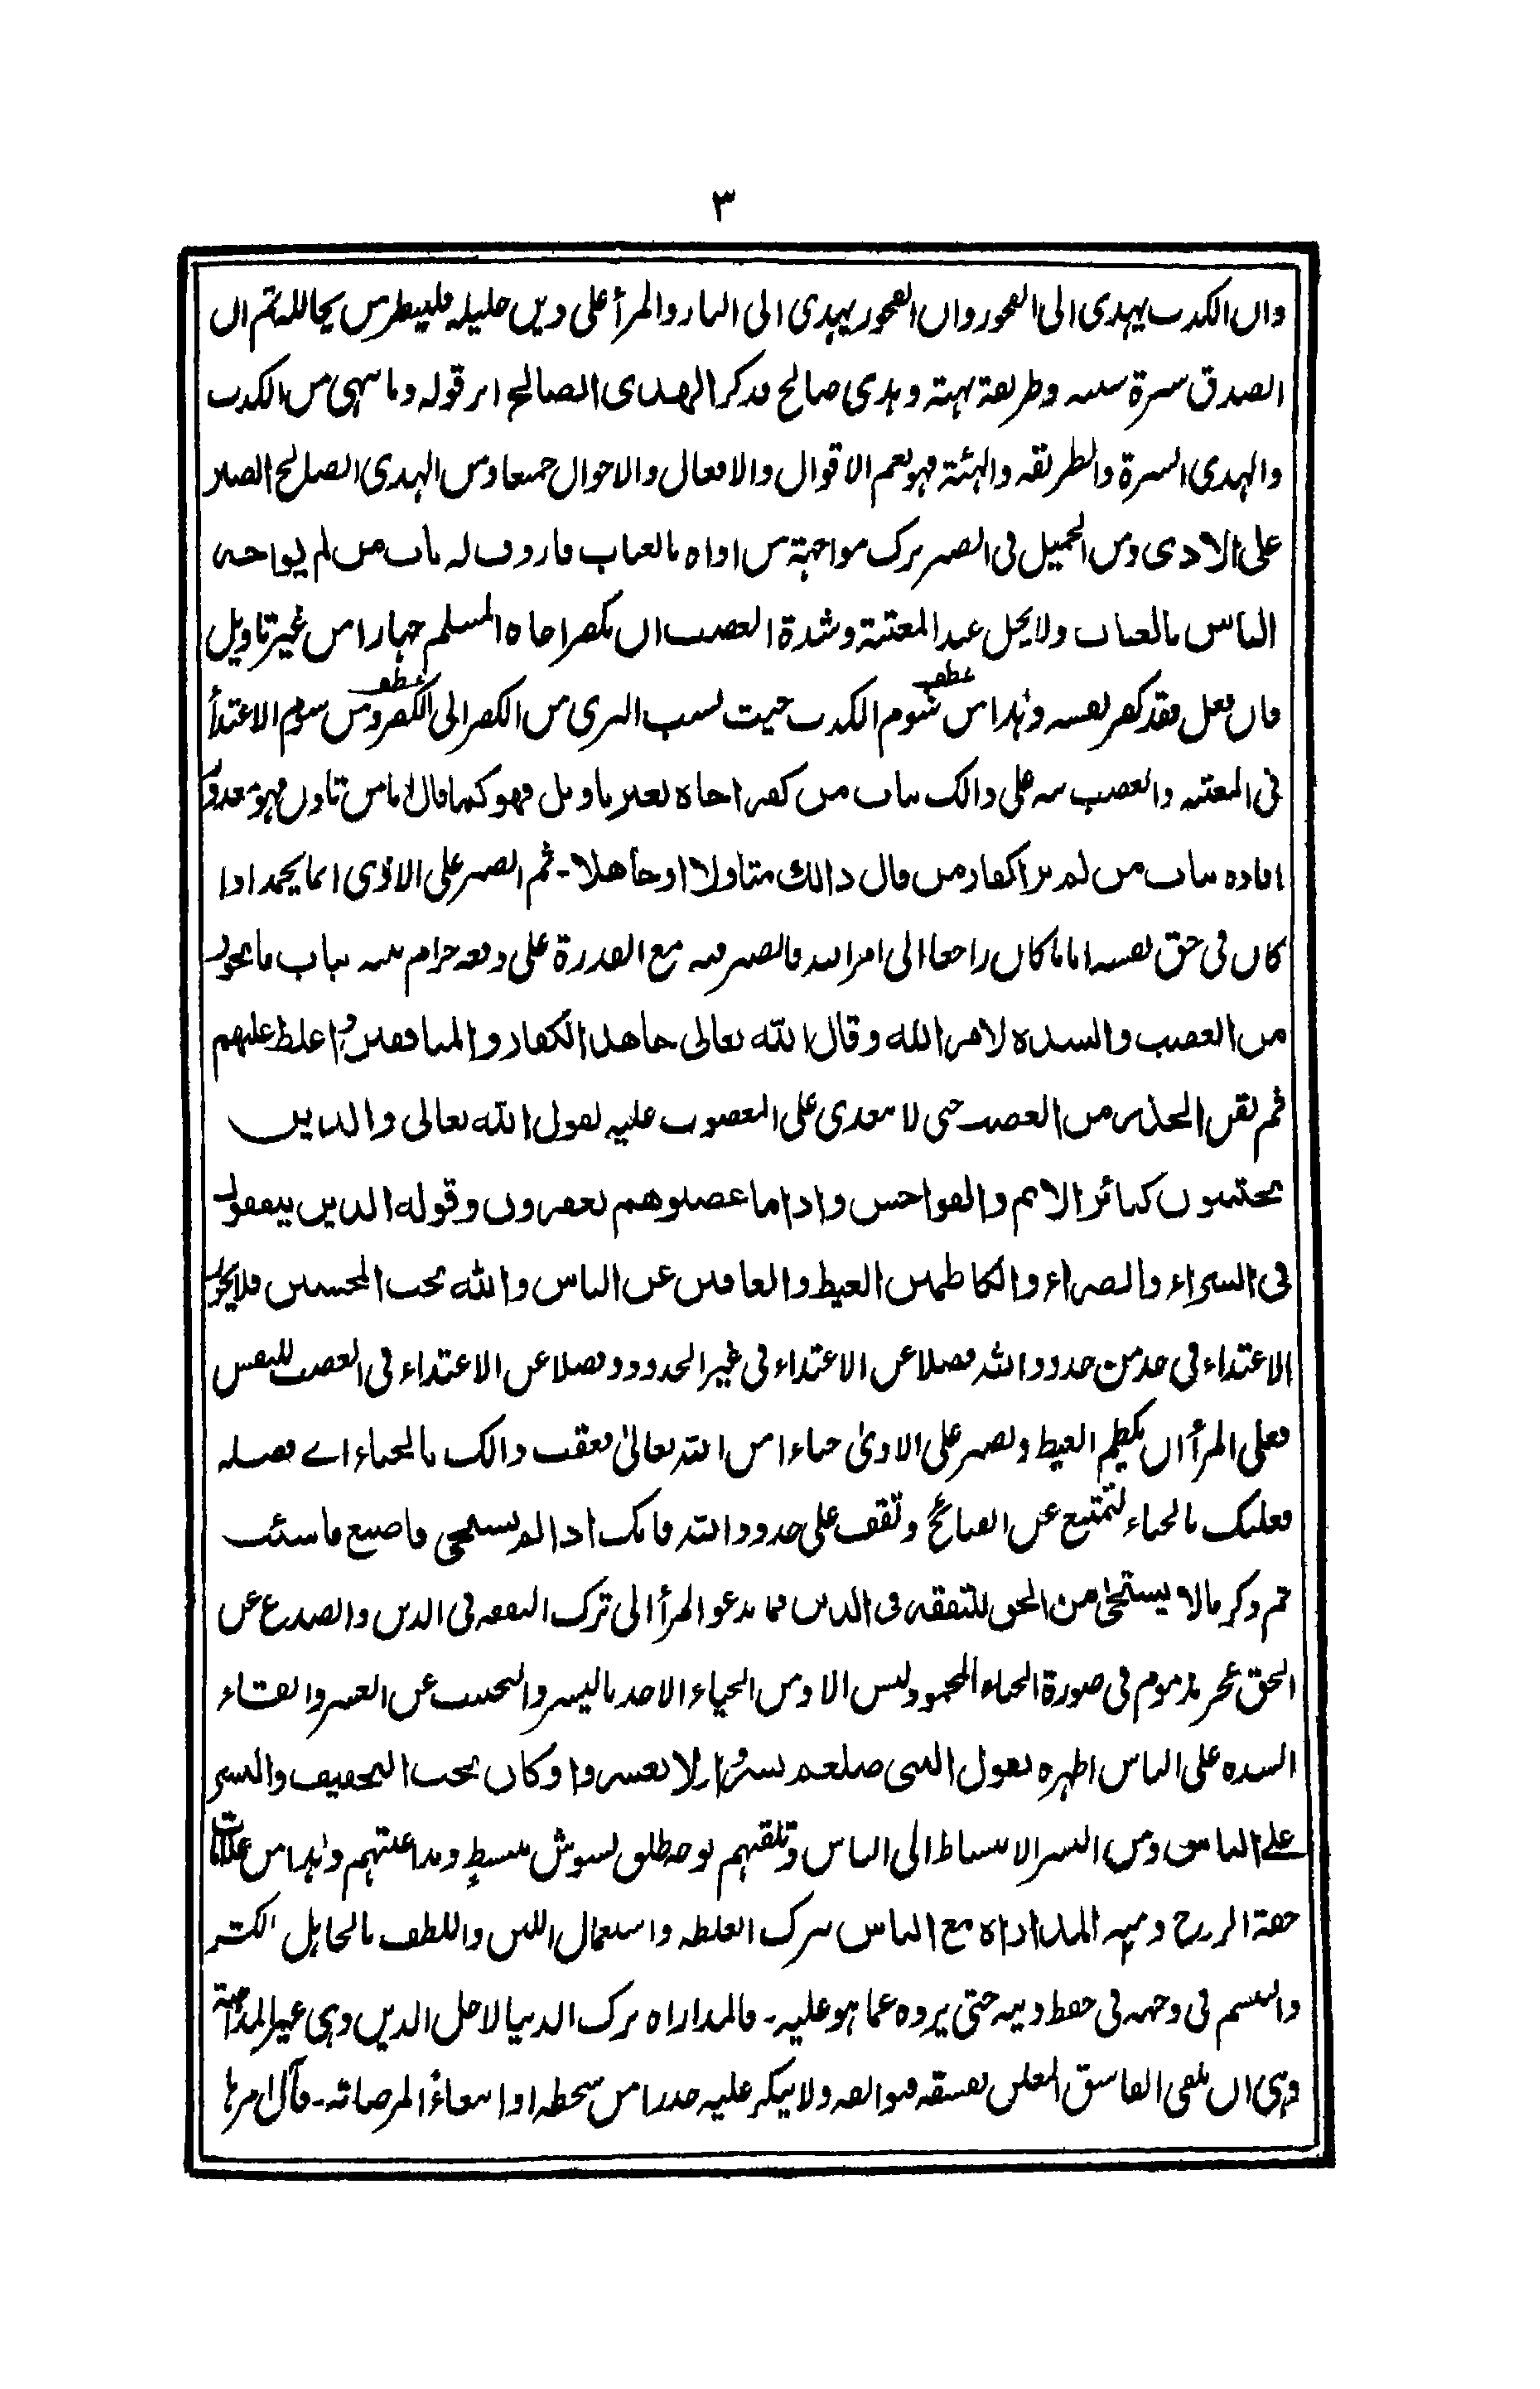 ٣
وان الكذب يهدى الى الفجور وان الفجور يهدى الى النار والمرأ على دين خليله فلينظر من يخالله ثم ان
الصدق سيرة سنية وطريقة بهية وهدى صالح فذكر الهدى الصالح اثر قوله وما ينهى من الكذب
والهدى السيرة والطريقة والهيئة فهو يعم الاقوال والافعال والاحوال جميعا ومن الهدى الصالح الصبر
على الاذى ومن الجميل فى الصبر ترك مواجهة من اذاه بالعتاب فاردف له باب من لم يواجه
الناس بالعتاب ولا يحل عند المعتبة وشدة الغضب ان يكفر اخاه المسلم جهارا من غير تاويل
فان فعل فقد كفر نفسه وهذا من شوم الكذب حيث نسب البرى من الكفر الى الكفر ومن شوم الاعتدأ
فى المعتبة والغضب نبه على ذالك بباب من كفر اخاه بغير تاويل فهو كما قال اما من تاول فهو معذور
افاده بباب من لم ير اكفار من قال ذالك متاولا او جاهلا - ثم الصبر على الاذى انما يحمد اذا
كان فى حق نفسه اما ما كان راجعا الى امر الله فالصبر فيه مع القدرة على دفعه حرام نبه بباب ما يجوز
من الغضب والشدة لامر الله وقال الله تعالى جاهد الكفار والمنافقين واغلظ عليهم
ثم نقل التحذير من الغضب حتى لا يتعدى على المغضوب عليه لقول الله تعالى والذين
يجتنبون كبائر الاثم والفواحش واذا ما غضبوا هم يغفرون وقوله الذين ينفقون
فى السراء والضراء والكاظمين الغيظ والعافين عن الناس والله يحب المحسنين فلا يجوز
الاعتداء فى حد من حدود الله فضلا عن الاعتداء فى غير الحدود وفضلا عن الاعتداء فى الغضب للنفس
فعلى المرأ ان يكظم الغيظ ويصبر على الاذى حياء من الله تعالى فعقب ذالك بالحياء اے فضله
فعليك بالحياء لتمتنع عن القبائح وتقف على حدود الله فانك اذا لم تستحى فاصنع ما شئت
ثم ذكر مالا يستحيٰ من الحق للتفقه فى الدين فما يدعو المرأ الى ترك التفقه فى الدين والصدع عن
الحق عجز مذموم فى صورة الحياء المحمود وليس الا ومن الحياء الاخذ باليسر والتجنب عن العسر والقاء
الشدة على الناس اظهره بقول النبى صلعم يسروا ولا تعسروا وكان يحب التخفيف واليسر
على الناس ومن اليسر الانبساط الى الناس وتلقيهم بوجه طلق بشوش منبسط ومداعبتهم وهذا من علامات
خفة الروح ومنه المداراة مع الناس بترك الغلظة واستعمال اللين واللطف بالجاهل الكثير
والتبسم فى وجهه فى حفظ دينه حتى يرده عما هو عليه - فالمداراة ترك الدنيا لاجل الدين وهى غير المداهنة
وهى ان يلقى الفاسق المعلن بفسقه فيوالفه ولا ينكر عليه حذرا من سخطه او ابتغاء لمرضاته - فآل امرها